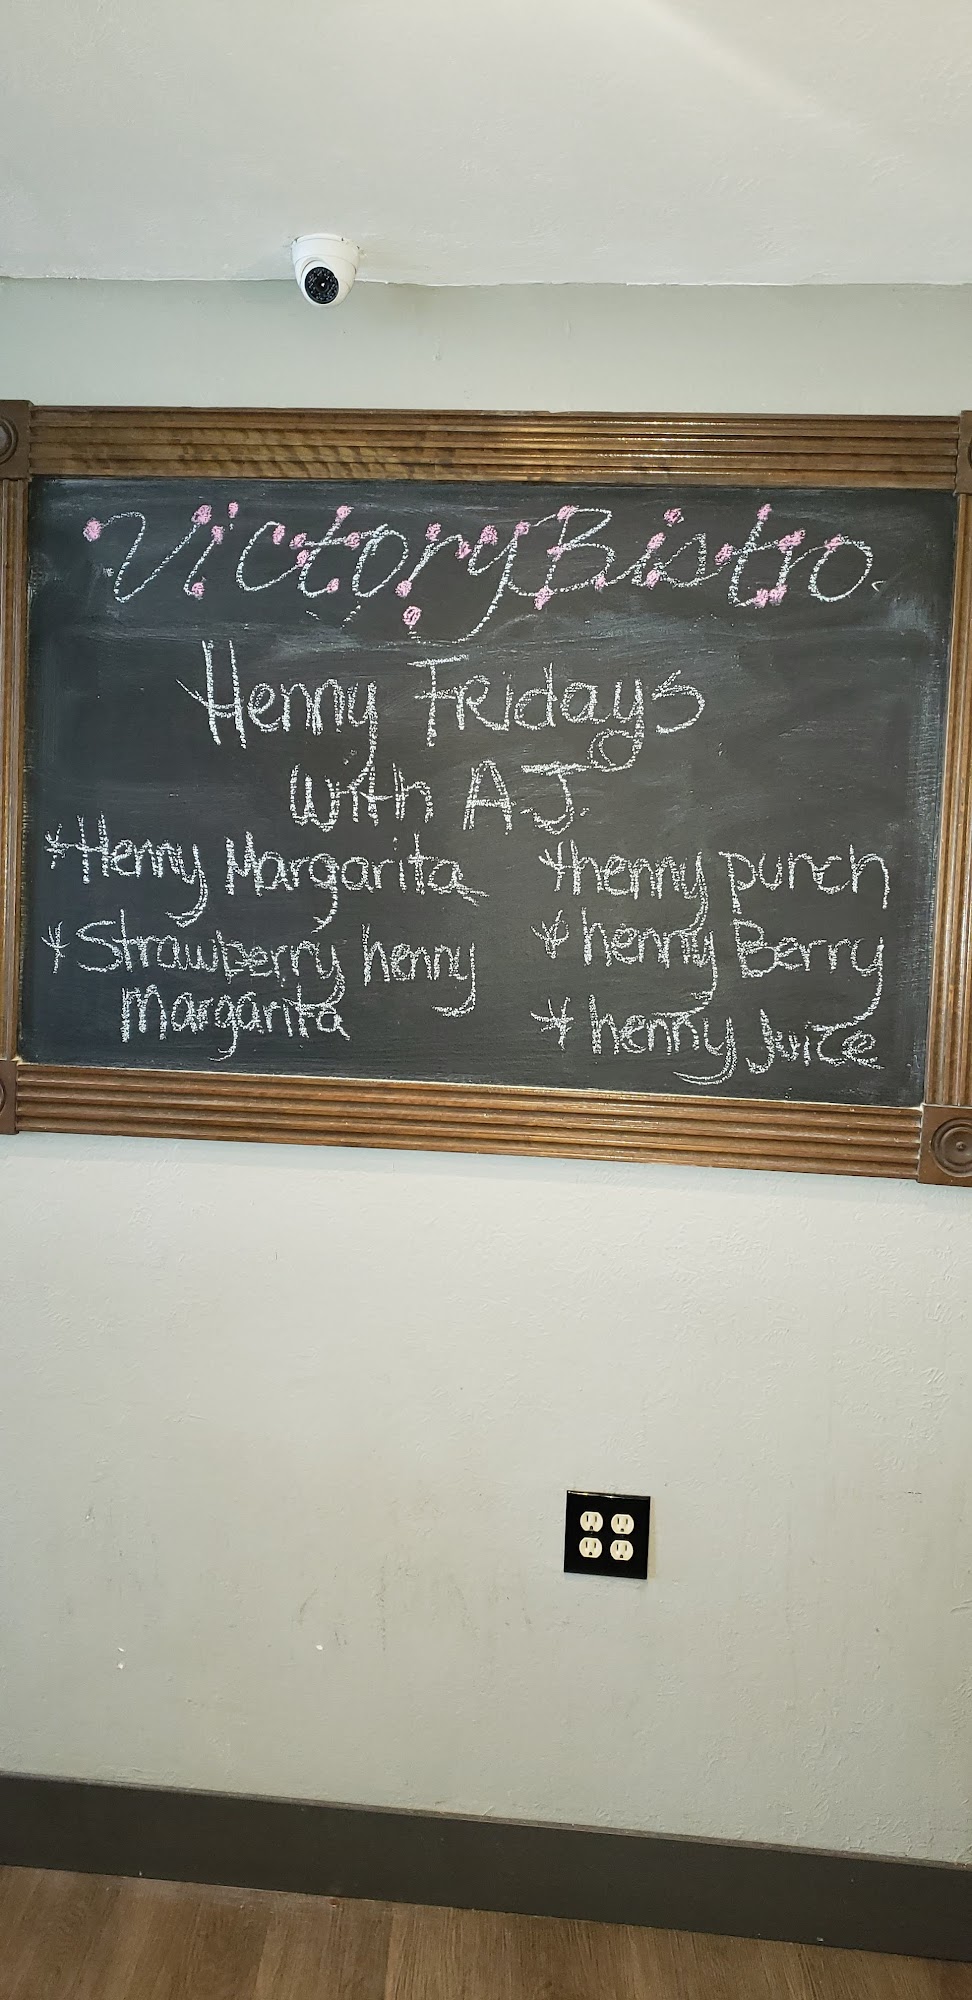 Victory Bistro
Henny Fridays
With A.J.
*Henny Margarita
*Strawberry henny
Margarita
*henny punch
*henny Berry
*henny Juice